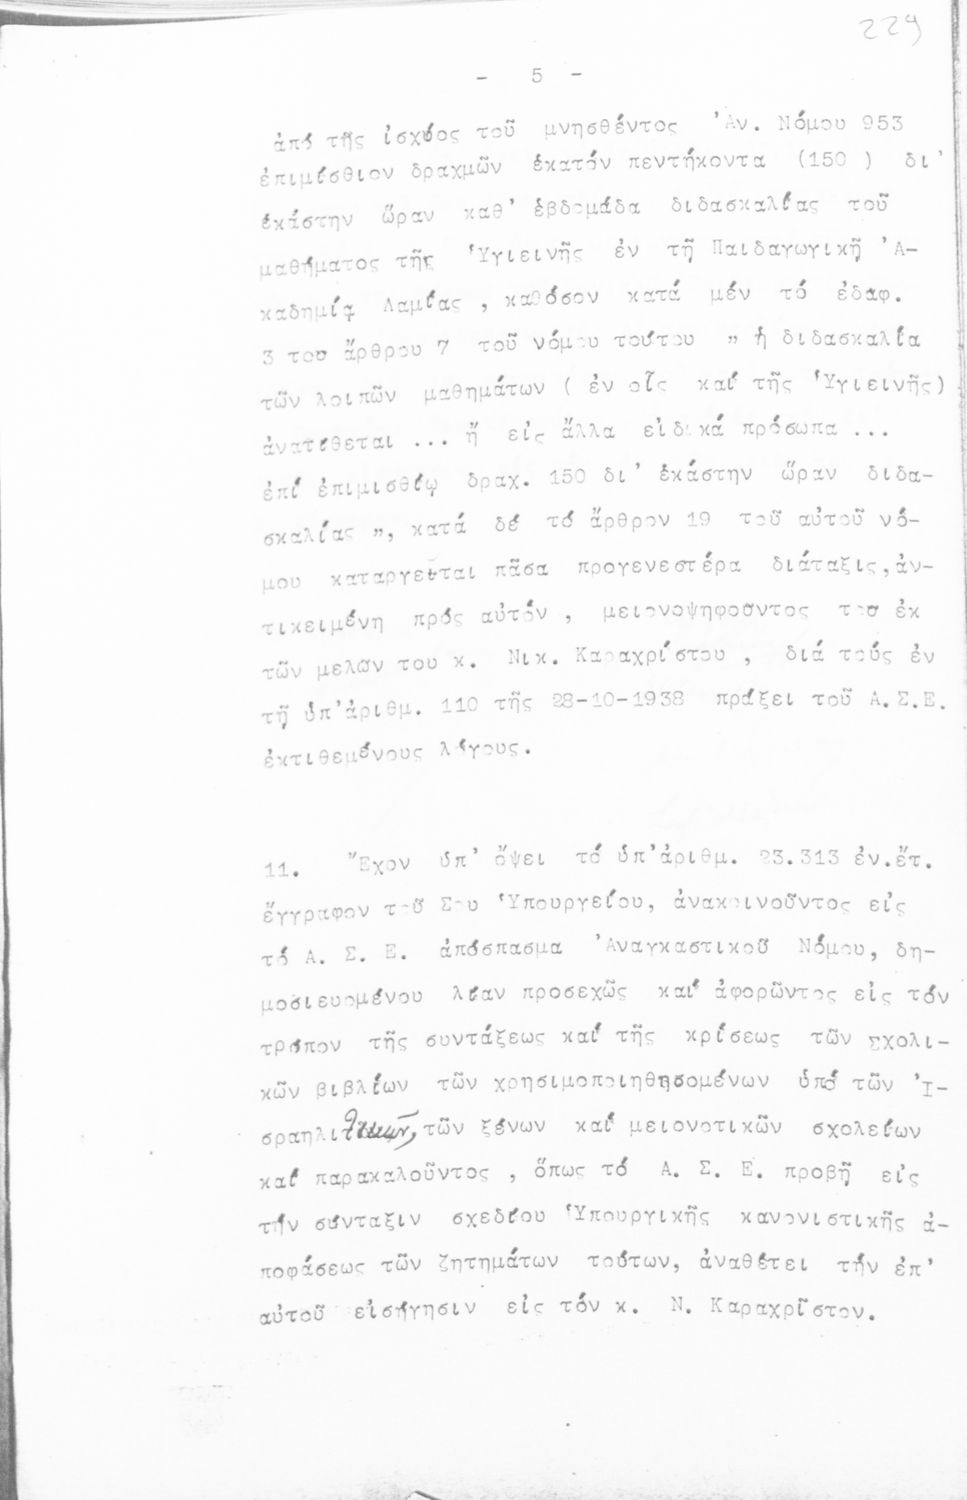 229
- 5 -
ἀπό τῆς ἰσχύος τοῦ μνησθέντος Ἀν. Νόμου 953
ἐπιμίσθιον δραχμῶν ἑκατόν πεντήκοντα (150 ) δι'
ἑκάστην ὥραν καθ' ἑβδομάδα διδασκαλίας τοῦ
μαθήματος τῆς Ὑγιεινῆς ἐν τῇ Παιδαγωγικῇ Ἀ-
καδημίᾳ Λαμίας , καθόσον κατά μέν τό ἐδαφ.
3 του ἄρθρου 7 τοῦ νόμου τούτου " ἡ διδασκαλία
τῶν λοιπῶν μαθημάτων ( ἐν οἷς καί τῆς Ὑγιεινῆς)
ἀνατίθεται ... ἤ εἰς ἄλλα εἰδικά πρόσωπα ...
ἐπί ἐπιμισθίῳ δραχ. 150 δι' ἑκάστην ὥραν διδα-
σκαλίας ", κατά δέ τό ἄρθρον 19 τοῦ αὐτοῦ νό-
μου καταργεῖται πᾶσα προγενεστέρα διάταξις,ἀν-
τικειμένη πρός αὐτόν , μειονοψηφοῦντος τοῦ ἐκ
τῶν μελῶν του κ. Νικ. Καραχρίστου , διά τούς ἐν
τῇ ὑπ'ἀριθμ. 110 τῆς 28-10-1938 πράξει τοῦ Α.Σ.Ε.
ἐκτιθεμένους λόγους.
11. Ἔχον ὑπ' ὄψει τό ὑπ'ἀριθμ. 23.313 ἐν.ἔτ.
ἔγγραφον τοῦ Σου Ὑπουργείου, ἀνακοινοῦντος εἰς
τό Α. Σ. Ε. ἀπόσπασμα Ἀναγκαστικοῦ Νόμου, δη-
μοσιευομένου λίαν προσεχῶς καί ἀφορῶντος εἰς τόν
τρόπον τῆς συντάξεως καί τῆς κρίσεως τῶν σχολι-
κῶν βιβλίων τῶν χρησιμοποιηθησομένων ὑπό τῶν Ἰ-
σραηλιτικῶν, τῶν ξένων καί μειονοτικῶν σχολείων
καί παρακαλοῦντος , ὅπως τό Α. Σ. Ε. προβῇ εἰς
τήν σύνταξιν σχεδίου Ὑπουργικῆς κανονιστικῆς ἀ-
ποφάσεως τῶν ζητημάτων τούτων, ἀναθέτει τήν ἐπ'
αὐτοῦ εἰσήγησιν εἰς τόν κ. Ν. Καραχρῖστον.